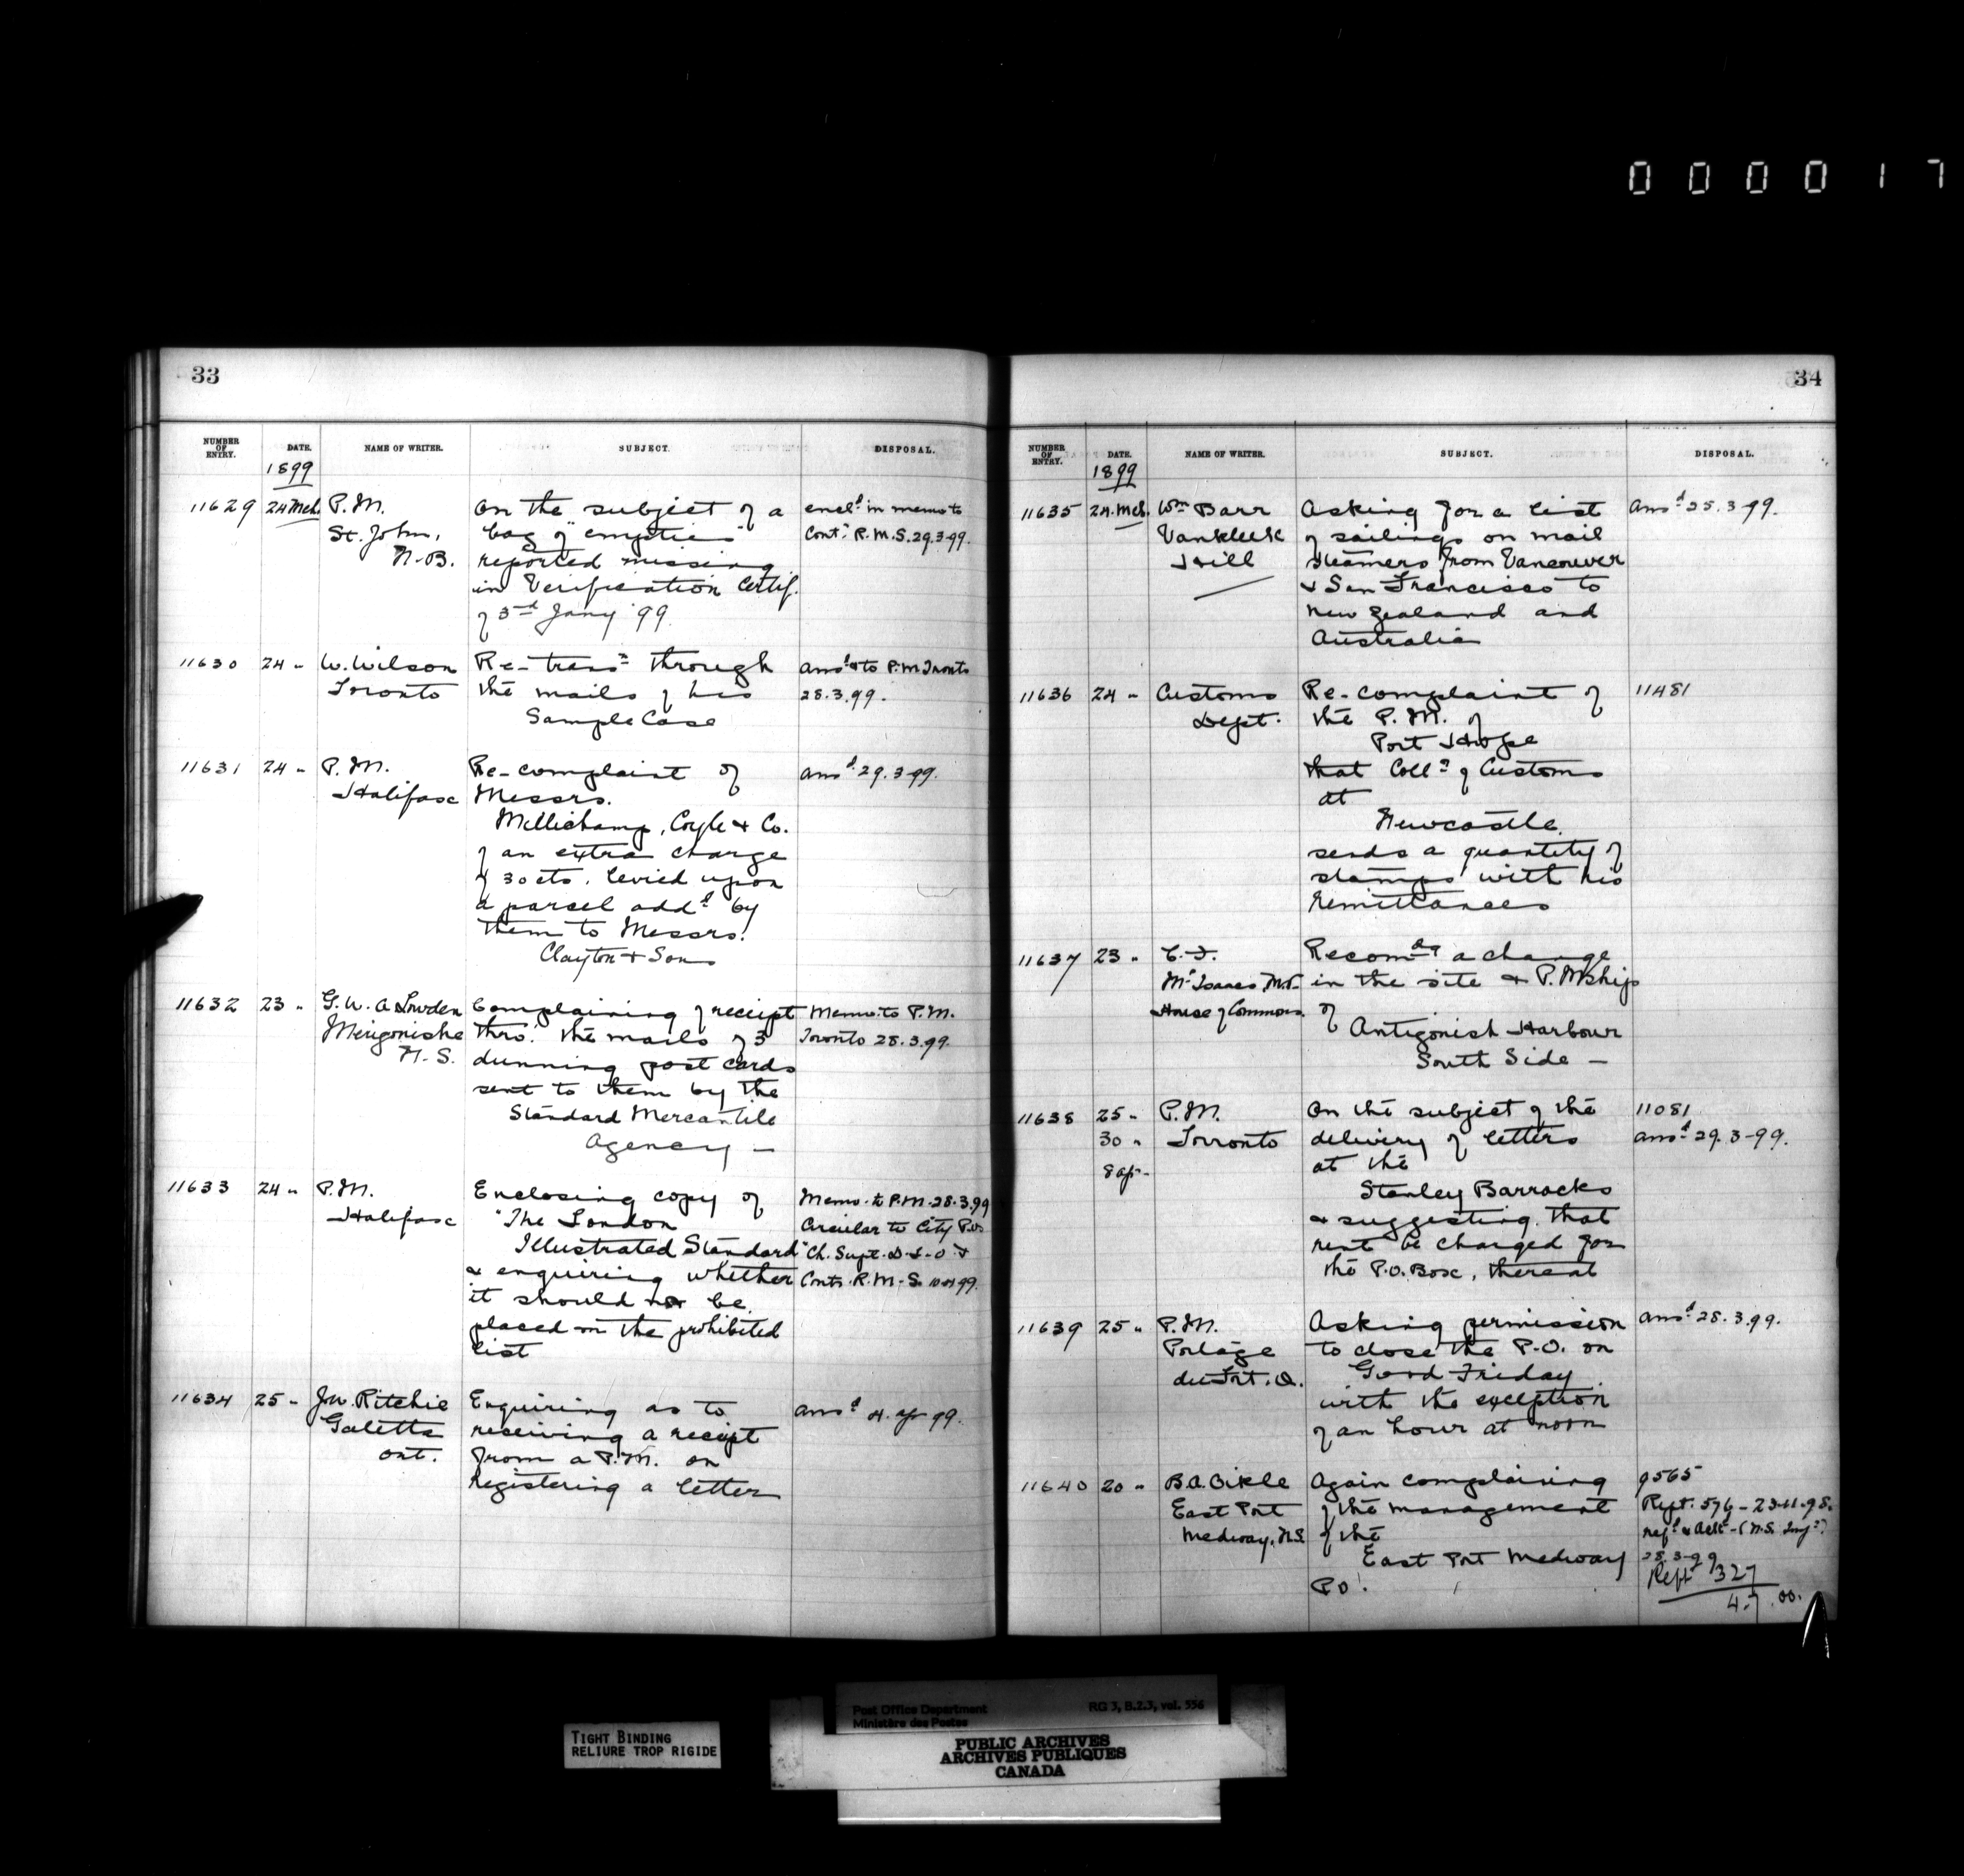 000017
33
NUMBER OF ENTRY. DATE. NAME OF WRITER. SUBJECT. DISPOSAL.
1899
11629 24 Mch. P.M. On the subject of a encld in memo to
St. John, bag of "empties" Contr R.M.S. 29.3.99.
N.B. reported missing
in Verification Certif.
of 3rd Jany '99
11630 24 " W. Wilson Re-transn through ansd & to P.M. Toronto
Toronto the mails of his 28.3.99.
Sample Case
11631 24 " P.M. Re-complaint of ansd 29.3.99.
Halifax Messrs.
Millichamp, Coyle & Co.
of an extra charge
of 30 cts. levied upon
a parcel addd by
them to Messrs.
Clayton & Sons
11632 23 " G.W. A Lowden Complaining of receipt Memo. to P.M.
Merigonishe thro' the mails of 3 Toronto 28.3.99.
N.S. dunning post cards
sent to them by the
Standard Mercantile
Agency —
11633 24 " P.M. Enclosing copy of Memo. to P.M. 28.3.99
Halifax "The London Circular to City P.Os
Illustrated Standard" Ch. Supt. D-L-O &
& enquiring whether Contr. R.M.S.
it should not be
placed on the prohibited
list
11634 25 " Jw. Ritchie Enquiring as to ansd 4. ap 99.
Galetta receiving a receipt
Ont. from a P.M. on
registering a letter
34
NUMBER OF ENTRY. DATE. NAME OF WRITER. SUBJECT. DISPOSAL.
1899
11635 24. Mch. Wm Barr Asking for a list ansd 25.3.99.
Vankleek of sailings on mail
Hill steamers from Vancouver
& San Francisco to
New Zealand and
Australia
11636 24 " Customs Re-complaint of 11481
Dept. the P.M. of
Port Hope
that Collr of Customs
at
Newcastle
sends a quantity of
stamps with his
remittances
11637 23 " C.F. Recomdg a change
McIsaac, M.P. in the site & P.Mship
House of Commons. of
Antigonish Harbour
South Side —
11638 25 " P.M. On the subject of the 11081
30 " Toronto delivery of letters ansd 29.3-99.
8 ap- at the
Stanley Barracks
& suggesting that
rent be charged for
the P.O. Box, thereat
11639 25 " P.M. Asking permission ansd 28.3.99.
Portage to close the P.O. on
du Fort. Q. Good Friday
with the exception
of an hour at noon
11640 20 " B.A. Cikle Again complaining 9565
East Port of the management Rept. 576 - 23.11.98.
Medway, N.S. of the refd & ackd - (N.S. Insp)
East Port Medway 28.3-99
P.O. Rept 327
4.7.00.
TIGHT BINDING
RELIURE TROP RIGIDE
Post Office Department RG 3, B.2.3, vol. 556
Ministère des Postes
PUBLIC ARCHIVES
ARCHIVES PUBLIQUES
CANADA